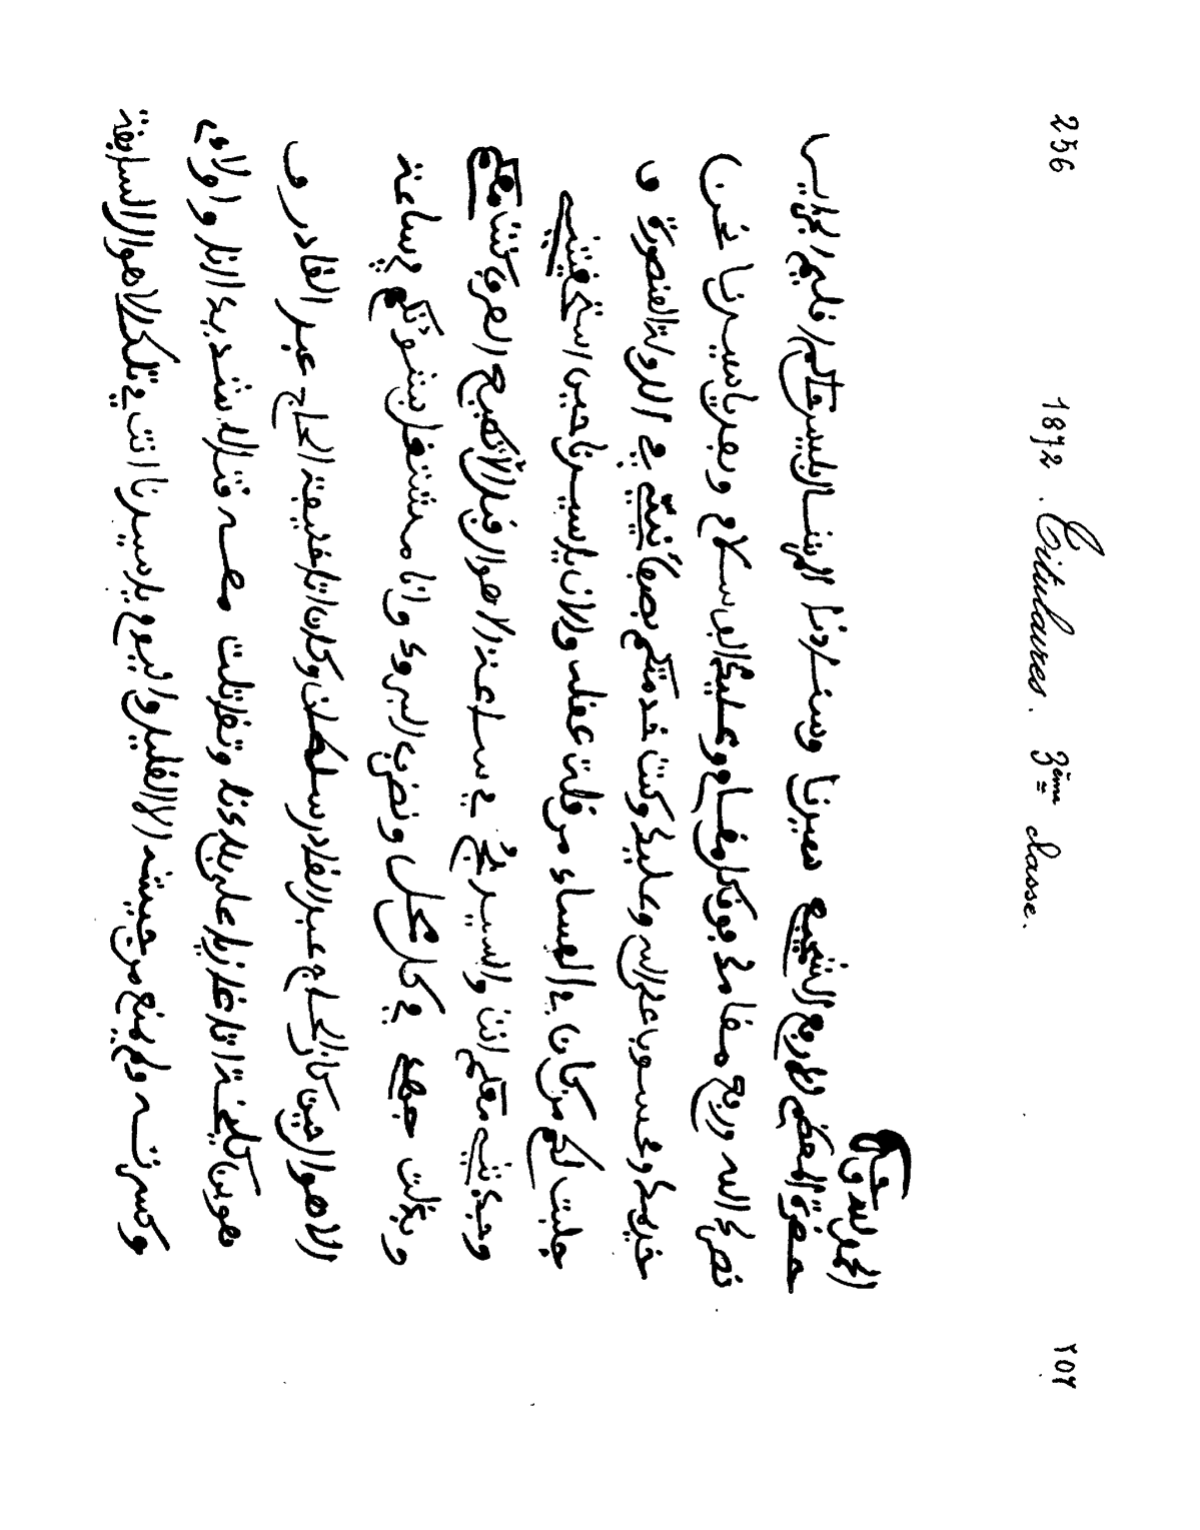 256 1872. Titulaires. 3ème classe. ٢٥٦
الحمد لله وحده
حضرة المعظم الارفع الشجيع سيدنا وسندنا المرشال حاكم اقليم الجزاير
نصرك الله ورفع مقامك فوق كل مقام وعليك الف سلام وبعد يا سيدنا نحن
خديمك ومحسوب على الله وعليك وكنت خدمتكم بصفاء نيتي في الدولة المنصورة و
جلبت لكم من كان في الفساد من قلت عقله والان يا سيدنا حين استحقيتني
وجدتني معكم انت والسيد في ساعة الاهوال قبل لا تصبح العرب كنت معكم
وبذلت جهدي في كل محل ونضرب البرود وانا مشتغل في ساعة
الاهوال حين كان الحاج عبد القادر سلطان وكان اتا خليفة الحاج عبد القادر و
هو بن اتا غازيا على بلادنا وتقاتلت معه قتال شديد انا واولادي
وكسرته ولم يمنع من جيشه الا القليل واليوم يا سيدنا انت في تلك الاهوال السابقة